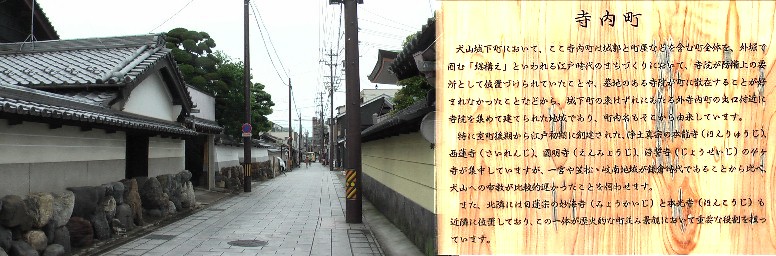 寺内町
犬山城下町において、ここ寺内町は城郭と町屋などを含む町全体を、外堀で
囲む「総構え」といわれる江戸時代のまちづくりにおいて、寺院が防備上の要
所として位置づけられていたことや、墓地のある寺院が町に散在することが好
まれなかったことなどから、城下町の東はずれにあたる外寺内町の出口付近に
寺院を集めて建てられた地域であり、町内名もそこから由来しています。
特に室町後期から江戸初期に創建された、浄土真宗の本龍寺(ほんりゅうじ)、
西蓮寺(さいれんじ)、圓明寺(えんみょうじ)、浄誓寺(じょうせいじ)の4ヶ
寺が集中していますが、一宮や笠松・岐南地域が鎌倉時代であることから比べ、
犬山への布教が比較的遅かったことを伺わせます。
また、北隣には日蓮宗の妙海寺(みょうかいじ)と本光寺(ほんこうじ)も
近隣に位置しており、この一体が歴史的な町並み景観において重要な役割を担っ
ています。